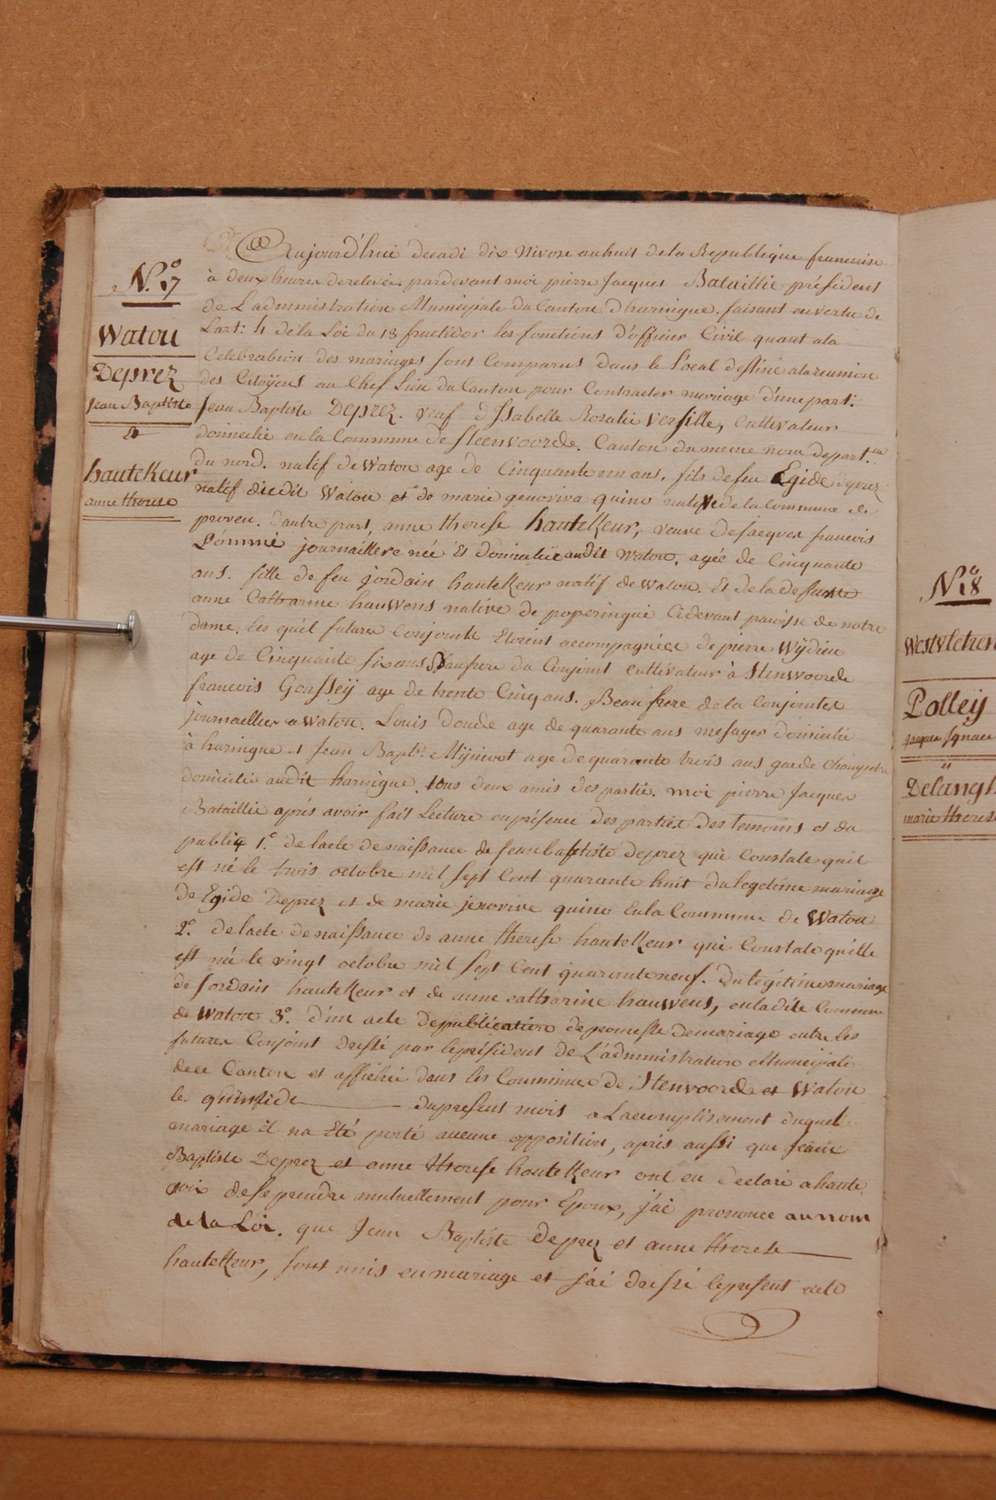 N.° 17
Watou
Deprez
Jean Baptiste
&
hautekeur
anne therese
Aujourd'hui decadi dix Nivose an huit de la Republique francaise
à deux heures de relevée, pardevant moi pierre Jacques Bataillie président
de L'administration Municipale du Canton d'haringue, faisant en vertu de
L'art: 4 de la Loi du 13 fructidor les fonctions d'officier Civil quant a la
Celebration des mariages sont Comparus dans le Local destiné a la reunion
des Citoÿens au Chef Lieu du Canton pour Contracter mariage d'une part:
Jean Baptiste Deprez. veuf d'Isabelle Rozalie Versille, Cultivateur
domicilié en la Commune de Steenvoorde. Canton du meme nom depart.
du nord. natif de Watou age de Cinquante un ans. fils de feu Egide deprez
natif dudit Watou et de marie genoviva quine native de la Commune de
proven. d'autre part, anne therese hautekeur, veuve de Jacques francois
journailliere née Et domiciliée audit Watou, agée de Cinquante
ans. fille de feu jordain hautekeur natif de Watou Et de la defunte
anne Catharine hauwens native de poperingue Cidevant paroisse de notre
dame. Les quels futurs Conjoints Etoient accompagnées de pierre Wÿdieu
age de Cinquante six ans Beaufrere du Conjoint Cultivateur à Stenvoorde
francois Goussey age de trente Cinq ans. Beau frere de la Conjointe
journaillier a Watou. Louis age de quarante ans messager domicilié
à haringue et Jean Bapt. age de quarante trois ans garde Champetre
domicilié audit haringue, tous deux amis des parties. moi pierre Jacques
Bataillie après avoir fait Lecture en présence des parties des temoins et du
public 1.° de l'acte de naissance de Jean baptiste deprez qui Constate qu'il
est né le trois octobre mil sept Cent quarante huit du legetime mariage
de Egide Deprez et de marie jenovive quine en la Commune de Watou
2.° de l'acte de naissance de anne therese hautekeur qui Constate qu'elle
est née le vingt octobre mil sept Cent quarante neuf. du légitime mariage
de Jordain hautekeur et de anne catharine hauwens, en ladite Commune
de Watou 3.° d'un acte de publication de promesse de mariage entre les
futurs Conjoint dressé par le président de L'administration Municipale
de ce Canton et affichée dans les Communes de Stenvoorde et Watou
le quintide du present mois a L'accomplissement duquel
mariage il na Eté porté aucune opposition, après aussi que Jean
Baptiste Deprez et anne therese hautekeur ont eu declaré a haute
voix de se prendre mutuellement pour Epoux, j'ai prononce au nom
de la Loi. que Jean Baptiste deprez et anne therese
hautekeur, sont unis en mariage et j'ai dressé le présent acte
N.° 18
Polley